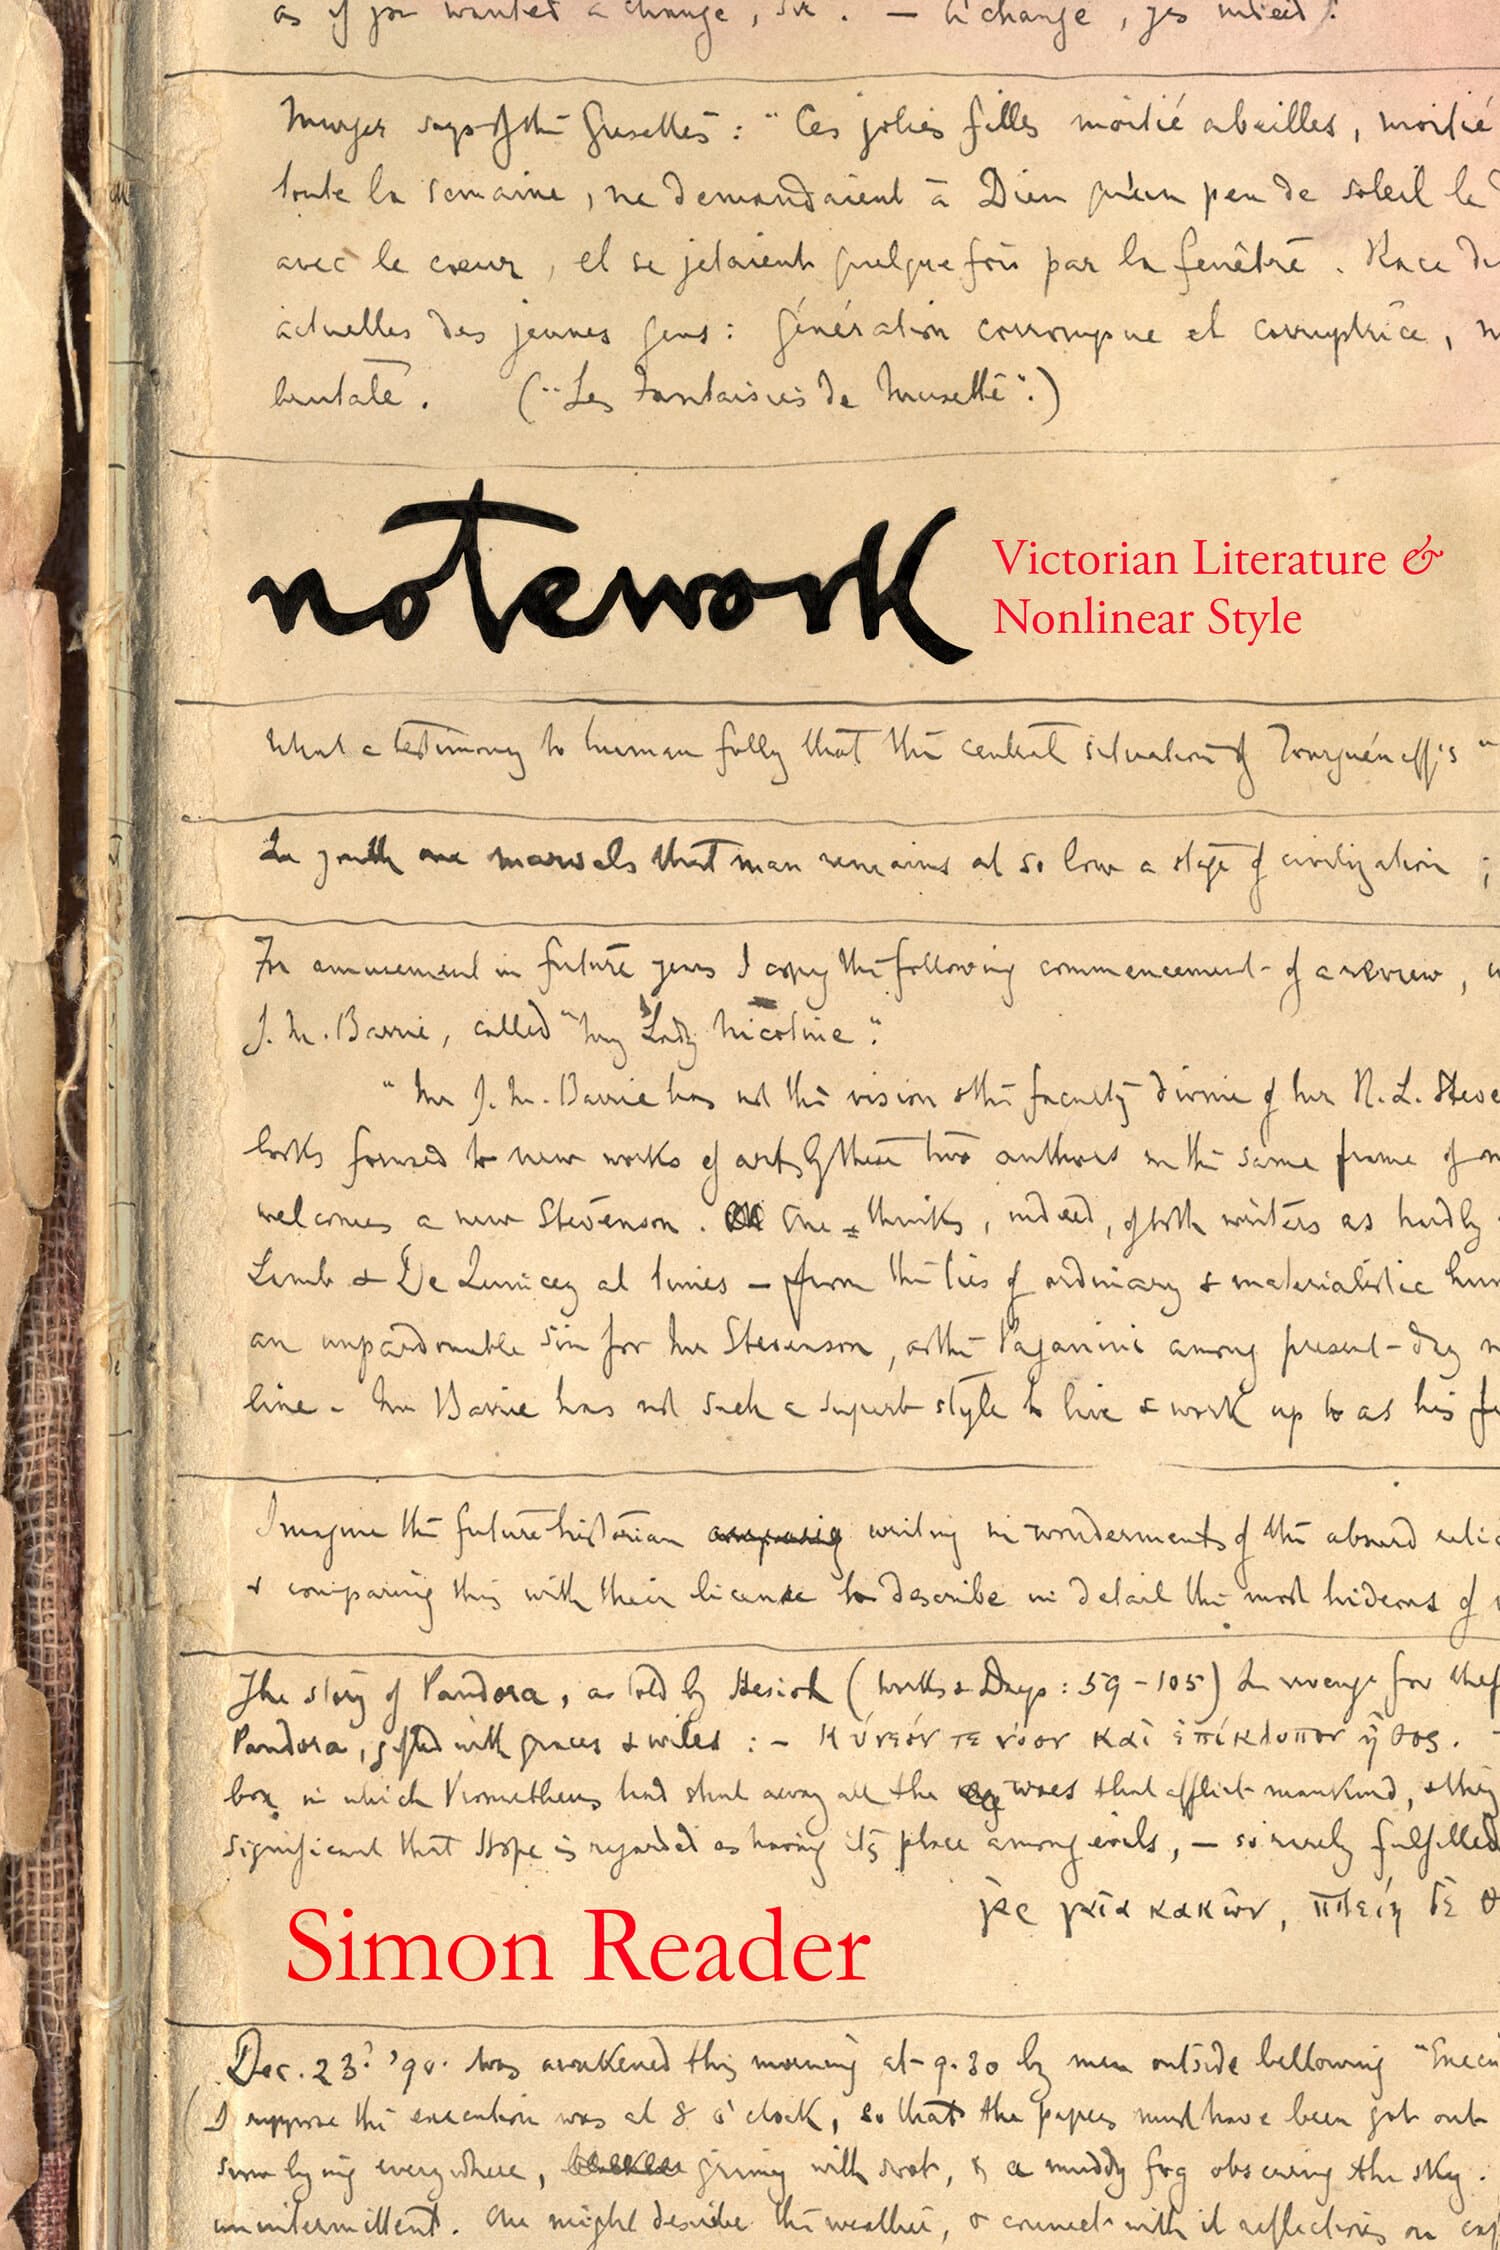 as if you wanted a change, sir. — A change, yes indeed!
Murger says of the Grisettes: "Ces jolies filles moitié abeilles, moitié
toute la semaine, ne demandaient à Dieu qu'un peu de soleil le
avec le cœur, et se jetaient quelquefois par la fenêtre. Race
actuelles des jeunes gens: génération corrompue et corruptrice,
brutale. ("Les Fantaisies de Musette".)
notework
Victorian Literature &
Nonlinear Style
What a testimony to human folly that the central situation of Tourguéneff's "
In youth one marvels that man remains at so low a stage of civilization;
For amusement in future years I copy the following commencement of a review,
J. M. Barrie, called "My Lady Nicotine".
"Mr J. M. Barrie has not the vision & the faculty divine of Mr R. L. Steve
looks forward to new works of art by these two authors in the same frame of
welcomes a new Stevenson. One thinks, indeed, of both writers as hardly
Lamb & De Quincey at times — from the ties of ordinary & materialistic
an unpardonable sin for Mr Stevenson, as the Paganini among present-day
line. Mr Barrie has not such a superb style to live & work up to as his
Imagine the future historian writing in wonderment of the absurd
& comparing this with their license to describe in detail the most hideous of
The story of Pandora, as told by Hesiod (Works & Days: 59-105) In revenge for
Pandora, gifted with graces & wiles: – κύνεόν τε νόον καὶ ἐπίκλοπον ἦθος.
box in which Prometheus had shut away all the woes that afflict mankind,
significant that Hope is regarded as having its place among evils, — so rarely fulfilled
γαῖα κακῶν, πλείη δὲ θ
Simon Reader
Dec. 23. '90. Was awakened this morning at 9.30 by men outside bellowing
I suppose the execution was at 8 o'clock, so that the papers must have been got out
Snow lying everywhere, grimy with soot, & a muddy fog obscuring the sky.
unintermittent. One might describe the weather, & connect with it reflections on